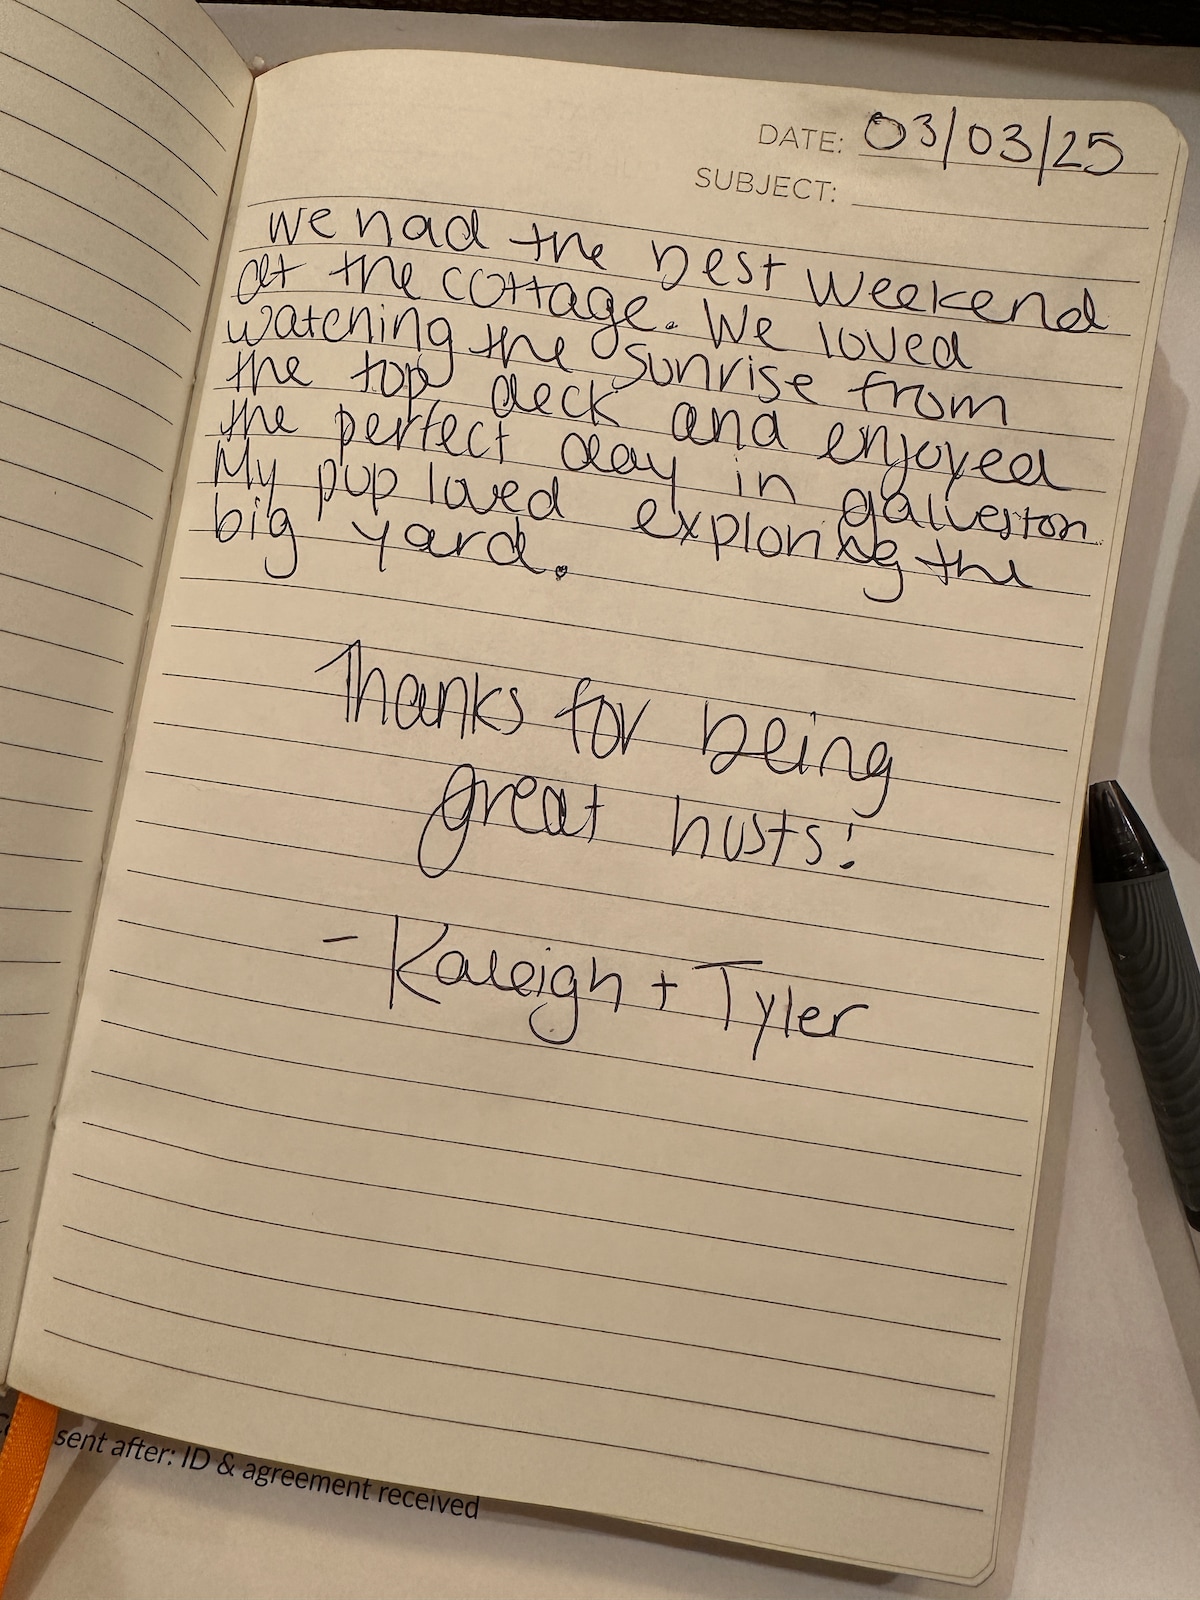 DATE: 03/03/25
SUBJECT:
We had the best weekend
at the cottage. We loved
watching the sunrise from
the top deck and enjoyed
the perfect day in galveston.
My pup loved exploring the
big yard.
Thanks for being
great hosts!
- Kaleigh + Tyler
sent after: ID & agreement received